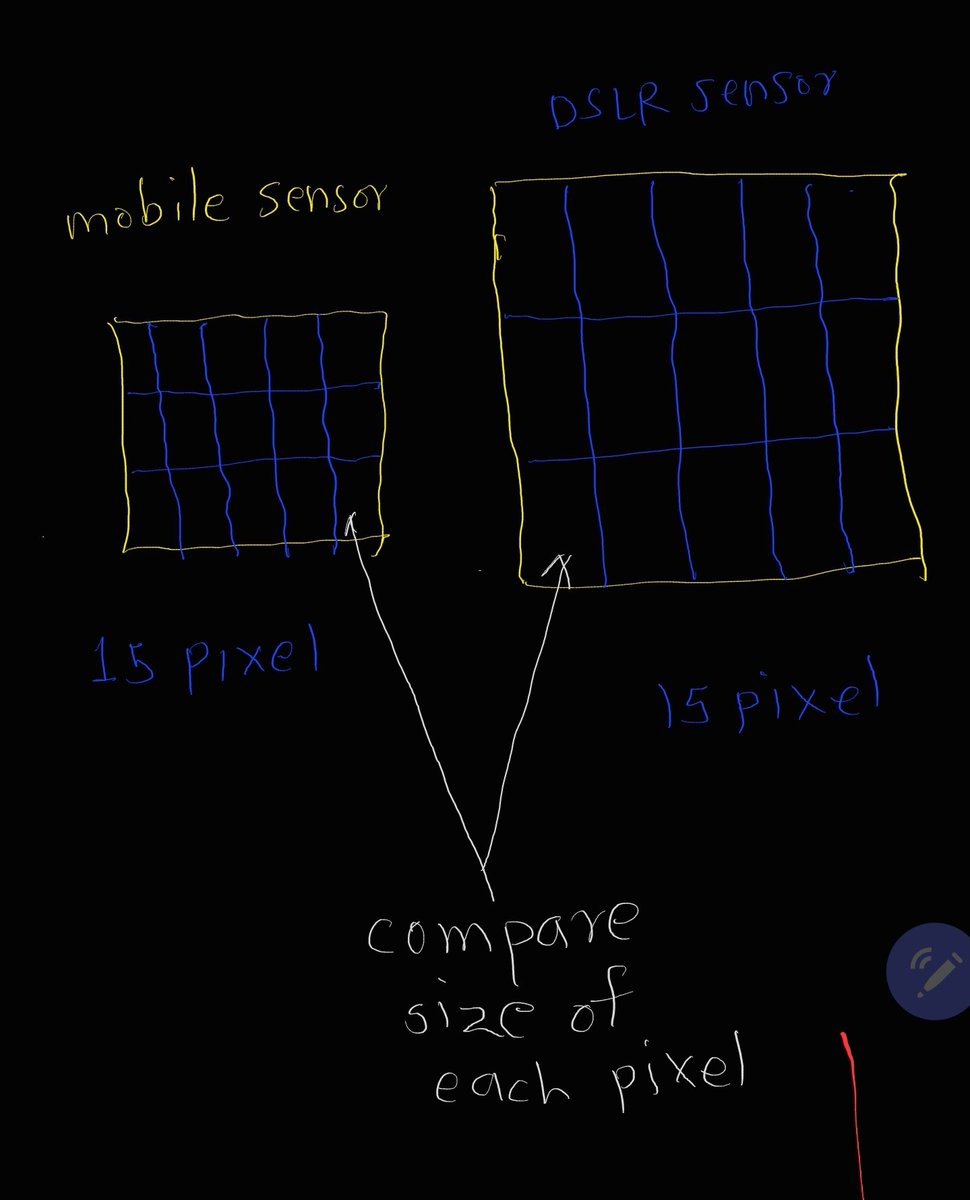 DSLR sensor
mobile sensor
15 pixel
15 pixel
compare
size of
each pixel